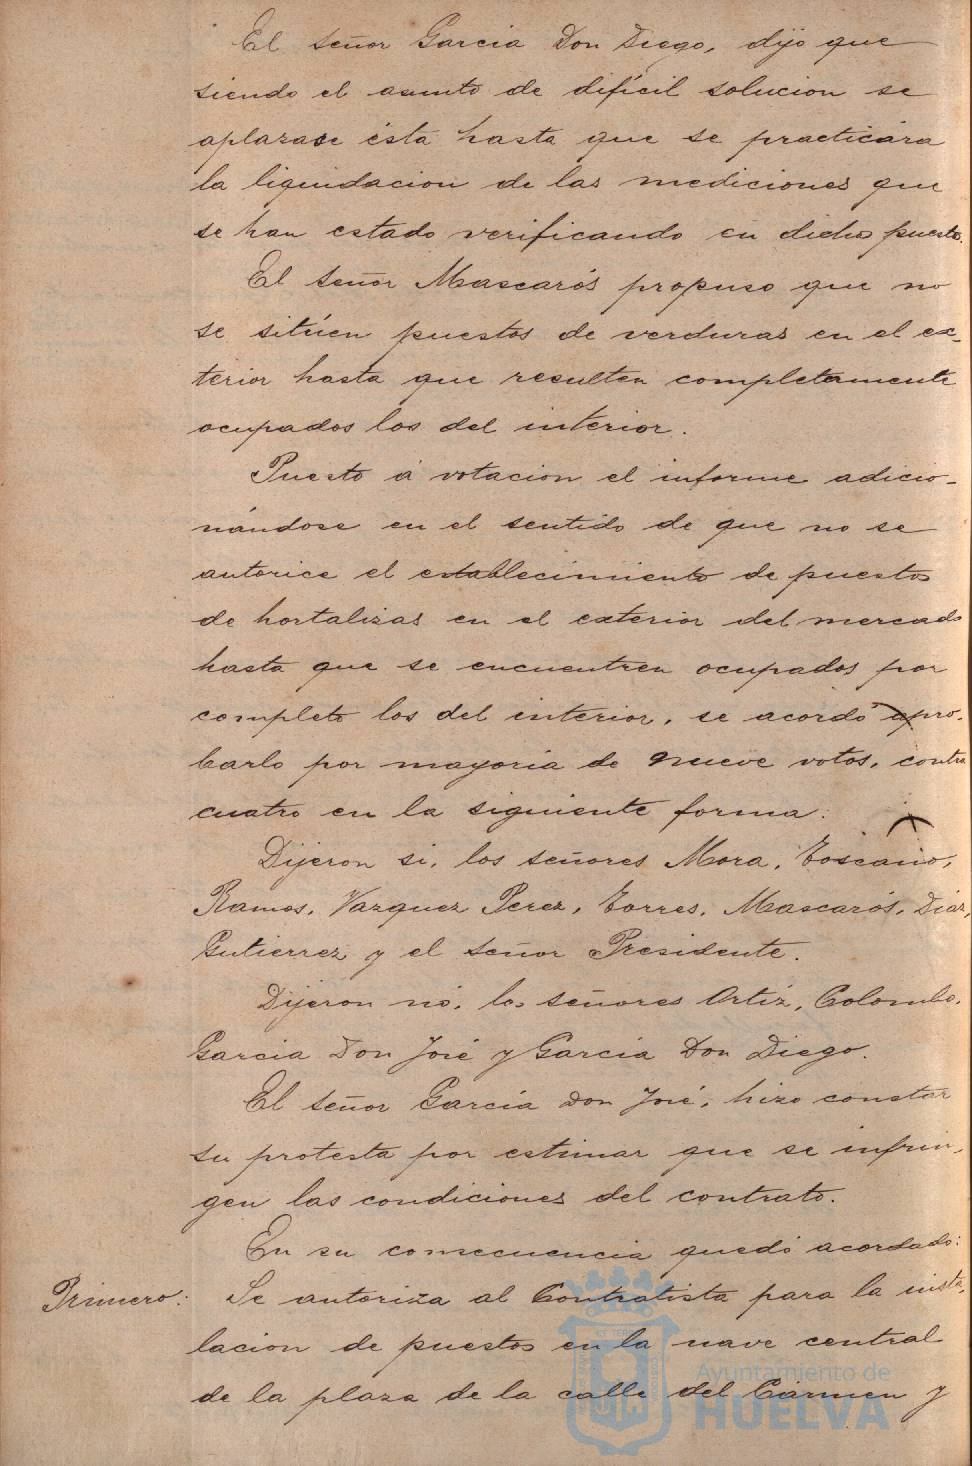 El señor Garcia Don Diego, dijo que
siendo el asunto de difícil solucion se
aplazase ésta hasta que se practicára
la liquidacion de las mediciones que
se han estado verificando en dicho puesto.
El señor Mascarós propuso que no
se sitúen puestos de verduras en el ex-
terior hasta que resulten completamente
ocupados los del interior.
Puesto á votacion el informe adicio-
nándose en el sentido de que no se
autorice el establecimiento de puestos
de hortalizas en el exterior del mercado
hasta que se encuentren ocupados por
completo los del interior, se acordó apro-
barlo por mayoria de nueve votos, contra
cuatro en la siguiente forma:
Dijeron si, los señores Mora, Toscano,
Ramos, Vazquez Perez, Torres, Mascarós, Diaz,
Gutierrez y el señor Presidente.
Dijeron nó, los señores Ortiz, Colombo,
Garcia Don José y Garcia Don Diego.
El señor Garcia Don José, hizo constar
su protesta por estimar que se infrin-
gen las condiciones del contrato.
En su consecuencia quedó acordado:
Primero: Se autoriza al Contratista para la insta-
lacion de puestos en la nave central
de la plaza de la calle del Cármen y
Ayuntamiento de
HUELVA